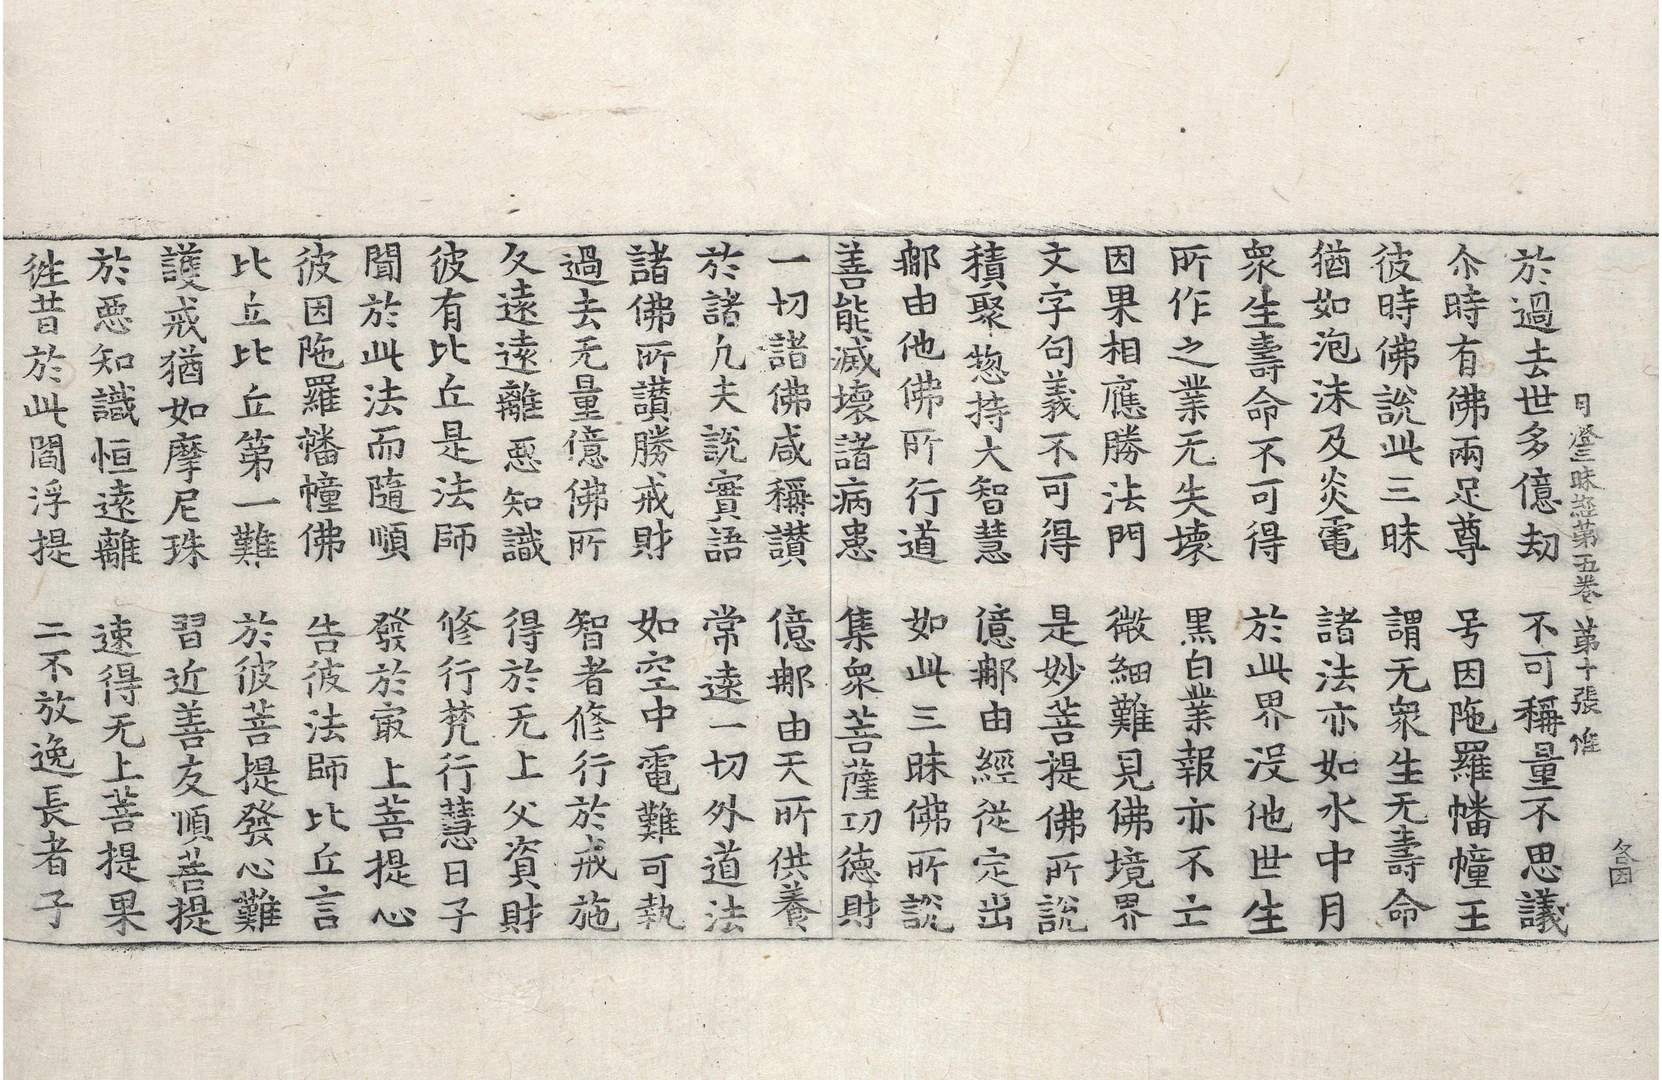 月燈三昧經第五卷 第十張 惟
於過去世多億劫 不可稱量不思議
尒時有佛兩足尊 号因陁羅幡幢王
彼時佛說此三昧 謂无衆生无壽命
猶如泡沫及炎電 諸法亦如水中月
衆生壽命不可得 於此界沒他世生
所作之業无失壞 黒白業報亦不亡
因果相應勝法門 微細難見佛境界
文字句義不可得 是妙菩提佛所說
積聚惣持大智慧 億那由經從定出
那由他佛所行道 如此三昧佛所說
善能滅壞諸病患 集衆菩薩功德財
一切諸佛咸稱讃 億那由天所供養
於諸凡夫說實語 常遠一切外道法
諸佛所讃勝戒財 如空中電難可執
過去无量億佛所 智者修行於戒施
久遠遠離惡知識 得於无上父資財
彼有比丘是法師 修行梵行慧日子
聞於此法而隨順 發於㝡上菩提心
彼因陁羅幡幢佛 告彼法師比丘言
比丘比丘第一難 於彼菩提發心難
護戒猶如摩尼珠 習近善友順菩提
於惡知識恒遠離 速得无上菩提果
徃昔於此閻浮提 二不放逸長者子